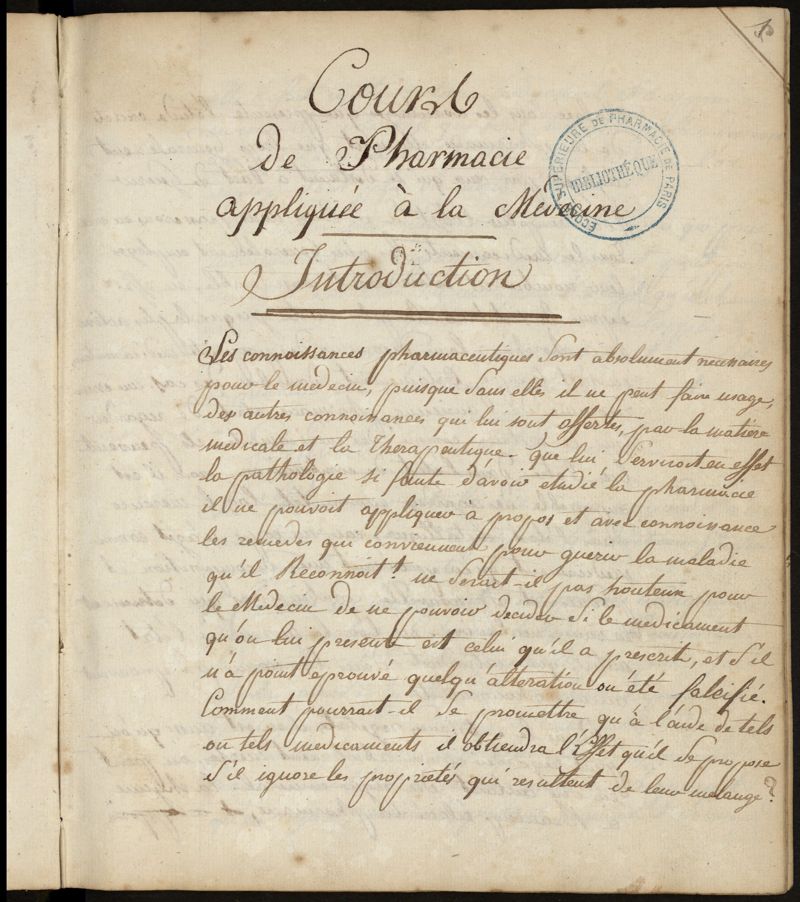 1
Cours
de Pharmacie
appliquée à la Médecine
ECOLE SUPERIEURE DE PHARMACIE DE PARIS
BIBLIOTHÉQUE
Introduction
Les connoissances pharmaceutiques sont absolument necessaires
pour le medecin, puisque sans elles il ne peut faire usage,
des autres connoissances qui lui sont offertes, par la matière
medicale et la Therapeutique. Que lui serviroit en effet
la pathologie si faute d'avoir etudié la pharmacie
il ne pouvoit appliquer à propos et avec connoissance
les remedes qui conviennent pour guerir la maladie
qu'il Reconnoit! ne serait-il pas honteux pour
le Medecin de ne pouvoir decider si le medicament
qu'on lui presente est celui qu'il a prescrit, et s'il
n'a point eprouvé quelqu'alteration ou été falcifié.
Comment pourrait-il se promettre qu'à l'aide de tels
ou tels medicaments il obtiendra l'Effet qu'il se propose
s'il ignore les proprietés qui resultent de leur melange?